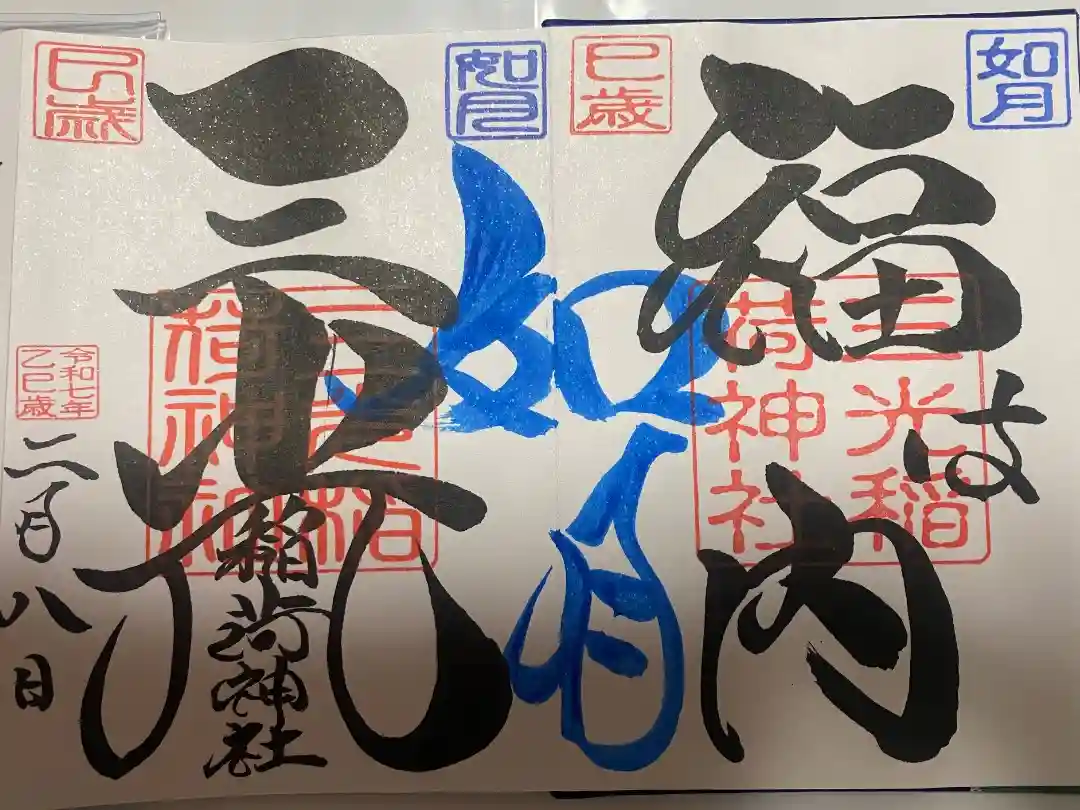 如月
福は内
三光稲
荷神社
巳歳
如月
如月
三光
稲荷神社
三光稲
荷神社
巳歳
令和七年
乙巳歳
二月八日